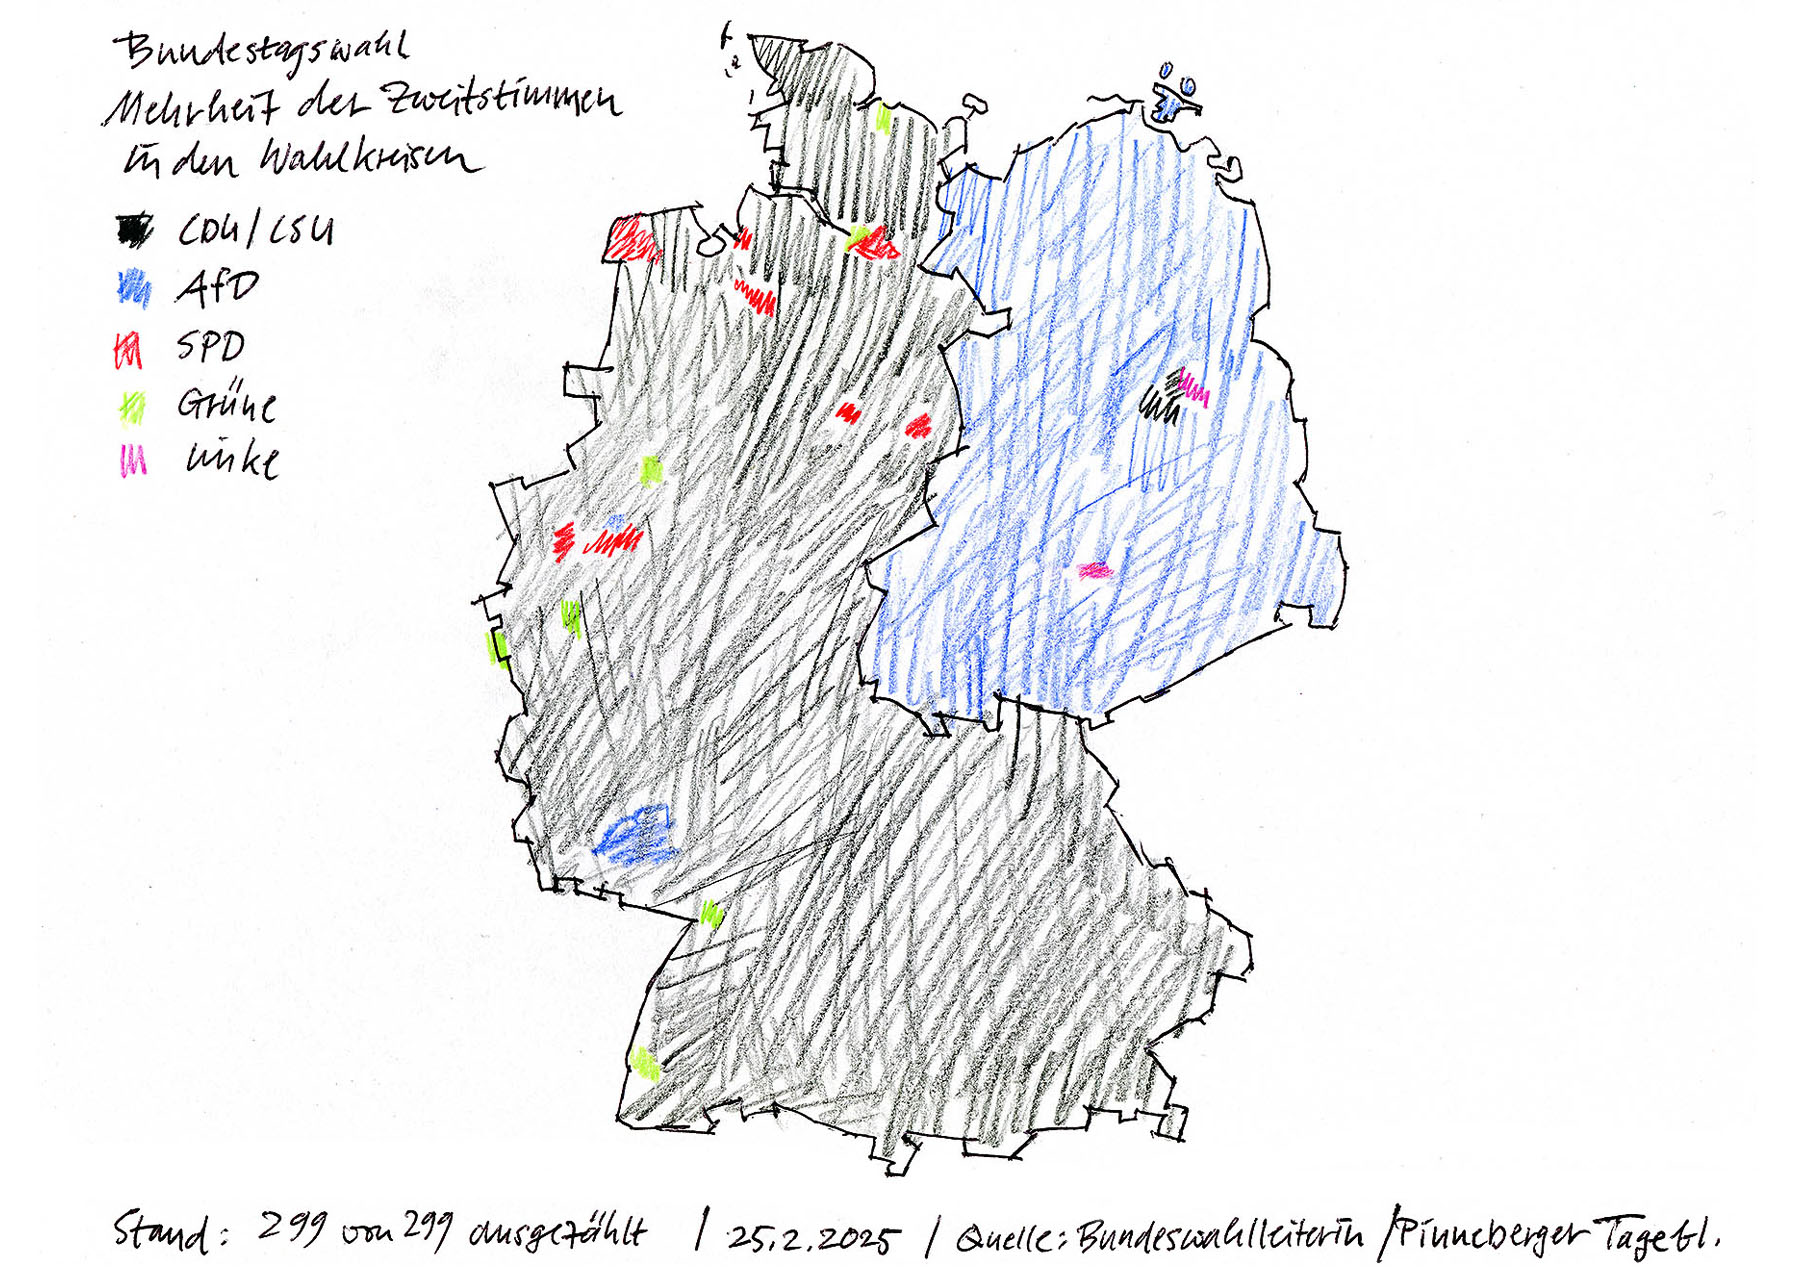 Bundestagswahl
Mehrheit der Zweitstimmen
in den Wahlkreisen
CDU/CSU
AfD
SPD
Grüne
Linke
Stand: 299 von 299 ausgezählt / 25.2.2025 / Quelle: Bundeswahlleiterin / Pinneberger Tagebl.